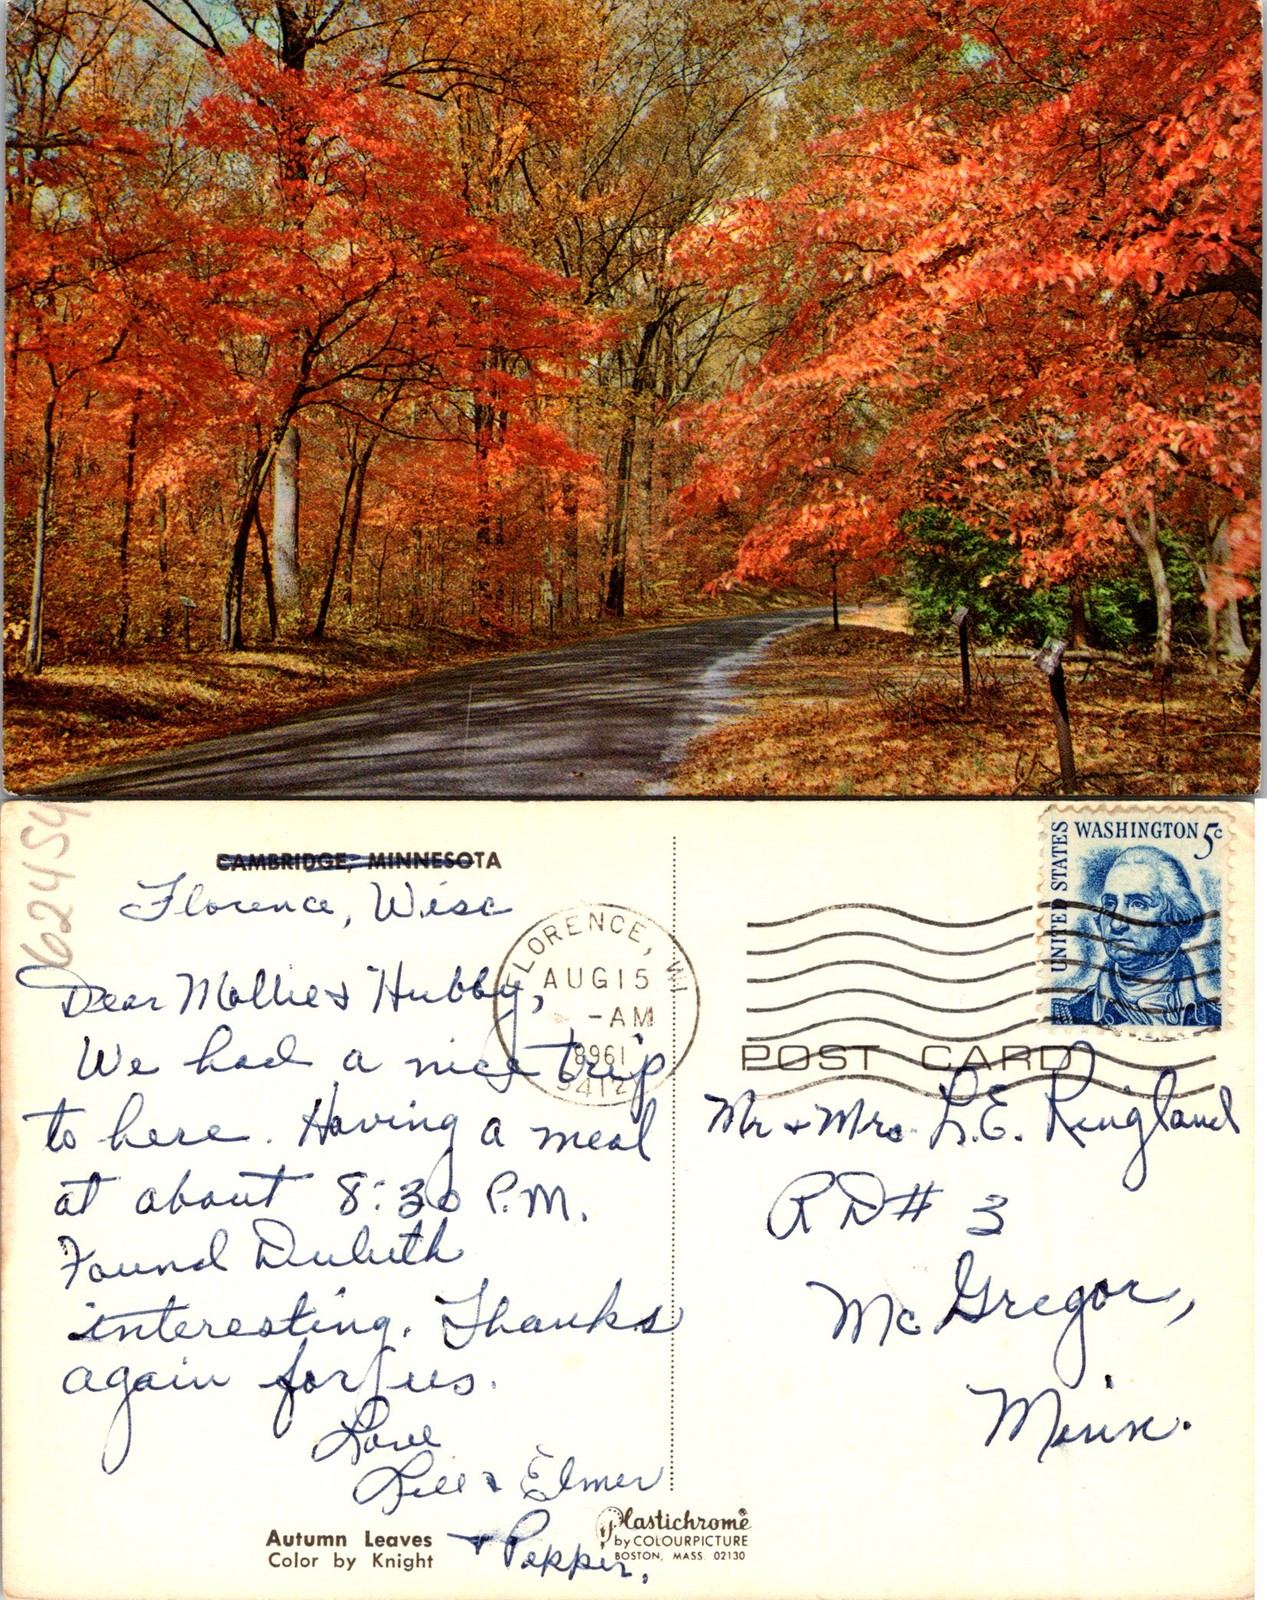 624454
CAMBRIDGE, MINNESOTA
Florence, Wisc
Dear Mollie & Hubby,
We had a nice trip
to here. Having a meal
at about 8:30 P.M.
Found Duluth
interesting. Thanks
again for us.
Love
Lill & Elmer
& Pepper.
Autumn Leaves
Color by Knight
Plastichrome®
by COLOURPICTURE
BOSTON, MASS. 02130
FLORENCE, WI
AUG 15
-AM
1968
5412
UNITED STATES
WASHINGTON 5c
POST CARD
Mr & Mrs L.E. Ringland
RD # 3
McGregor,
Minn.